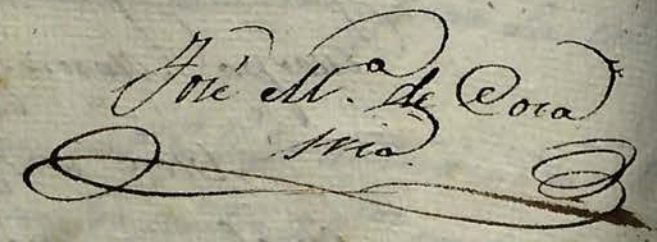 José M.ª de Coca
Srio